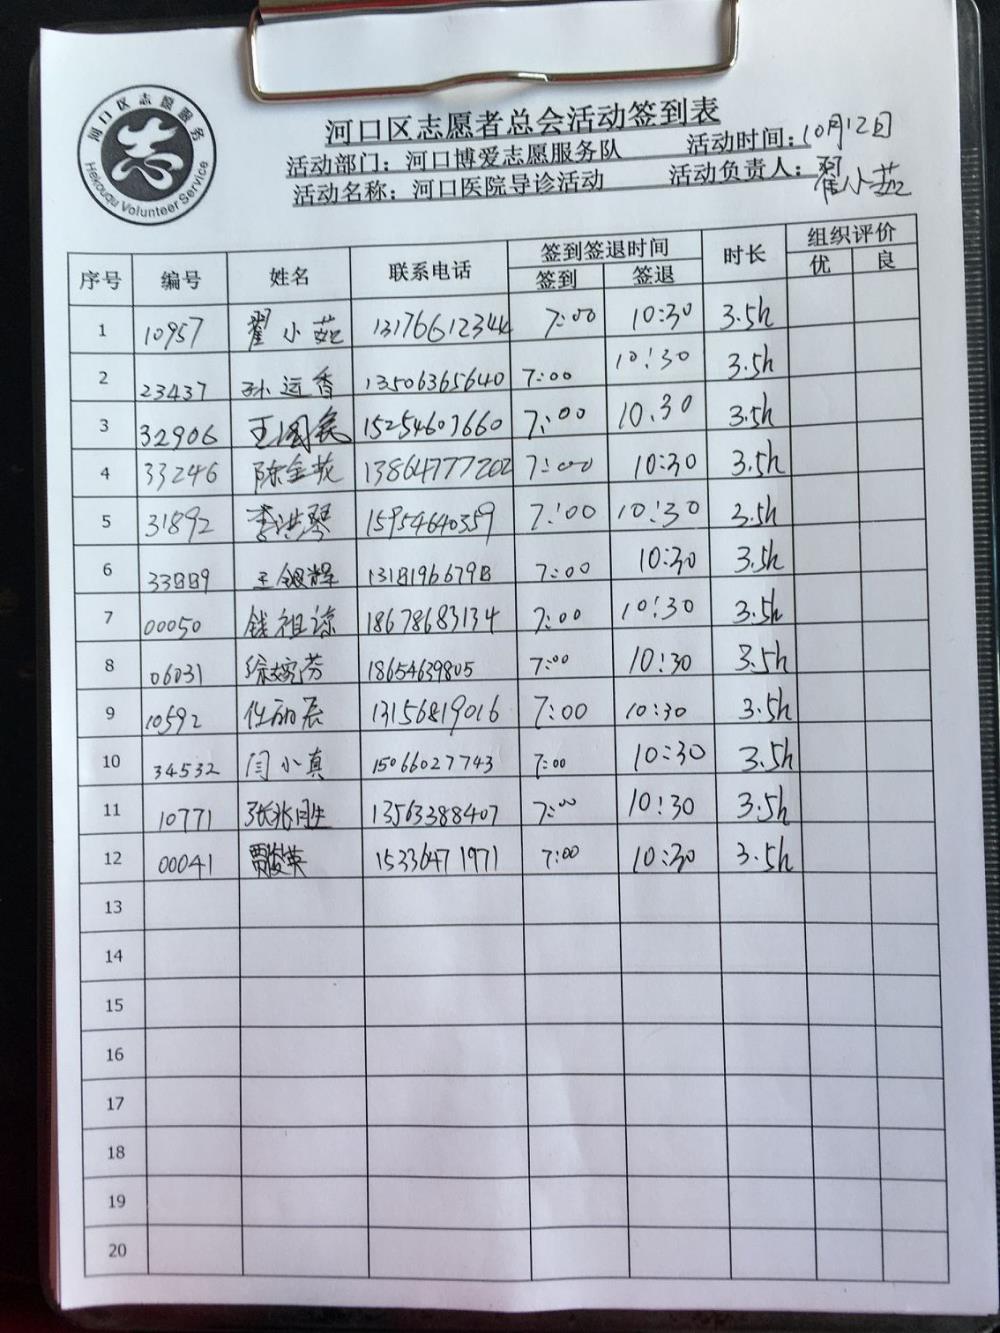 河口区志愿服务
志
Hekouqu Volunteer Service
河口区志愿者总会活动签到表
活动部门：河口博爱志愿服务队 活动时间：10月12日
活动名称：河口医院导诊活动 活动负责人：翟小茹
序号 编号 姓名 联系电话 签到签退时间 时长 组织评价
签到 签退 优 良
1 10957 翟小茹 13176612344 7:00 10:30 3.5h
2 23437 孙运香 13506365640 7:00 10:30 3.5h
3 32906 王国民 15254607660 7:00 10.30 3.5h
4 33246 陈金花 13864777202 7:00 10:30 3.5h
5 31892 李洪琴 15954640359 7:00 10:30 3.5h
6 33889 王银辉 13181966798 7:00 10:30 3.5h
7 00050 钱祖谅 18678683134 7:00 10:30 3.5h
8 06031 徐婉芳 18654639805 7:00 10:30 3.5h
9 10592 任丽辰 13156819016 7:00 10:30 3.5h
10 34532 闫小真 15066027743 7:00 10:30 3.5h
11 10771 张兆胜 13563388407 7:00 10:30 3.5h
12 00041 贾俊英 15336471971 7:00 10:30 3.5h
13
14
15
16
17
18
19
20